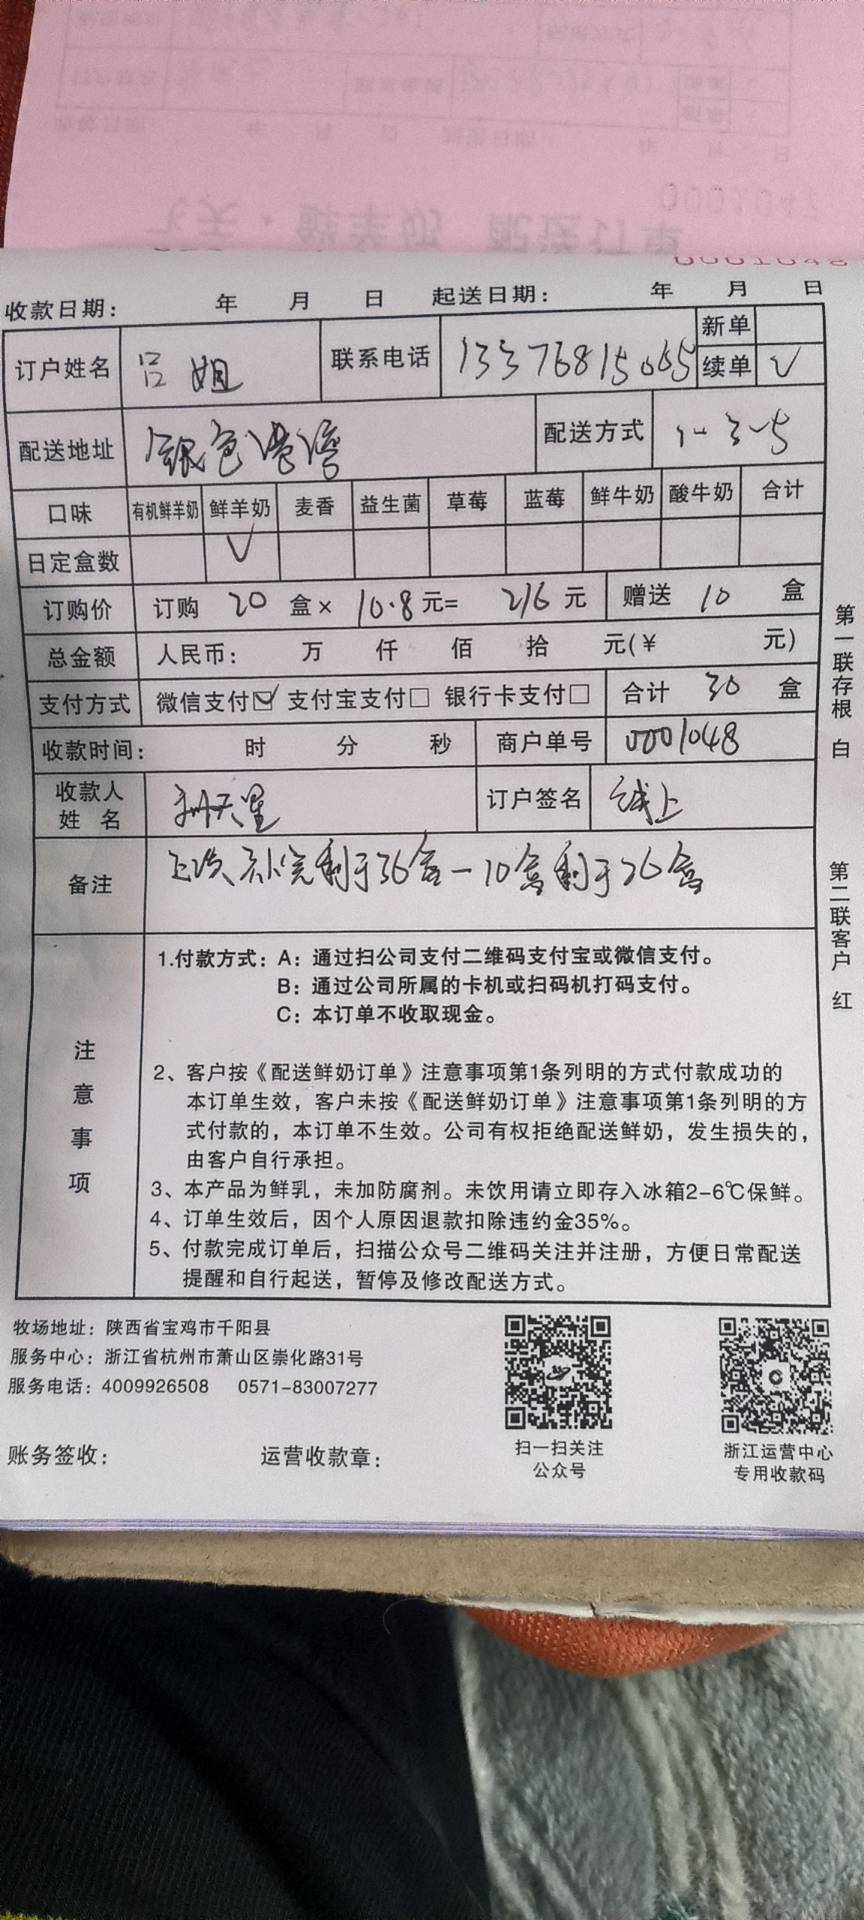 0001047
飞天·鲜羊奶 配送订单
0001048
收款日期： 年 月 日 起送日期： 年 月 日
订户姓名 吕姐 联系电话 13376815065 新单
续单 √
配送地址 银色港湾 配送方式 1-3-5
口味 有机鲜羊奶 鲜羊奶 麦香 益生菌 草莓 蓝莓 鲜牛奶 酸牛奶 合计
日定盒数 √
订购价 订购 20 盒× 10.8元= 216 元 赠送 10 盒
总金额 人民币： 万 仟 佰 拾 元(¥ 元)
支付方式 微信支付☑ 支付宝支付□ 银行卡支付□ 合计 30 盒
收款时间： 时 分 秒 商户单号 0001048
收款人姓名 天星 订户签名 线上
备注 上次补完剩于36盒-10盒剩于26盒
注意事项
1.付款方式：A：通过扫公司支付二维码支付宝或微信支付。
B：通过公司所属的卡机或扫码机打码支付。
C：本订单不收取现金。
2、客户按《配送鲜奶订单》注意事项第1条列明的方式付款成功的
本订单生效，客户未按《配送鲜奶订单》注意事项第1条列明的方
式付款的，本订单不生效。公司有权拒绝配送鲜奶，发生损失的，
由客户自行承担。
3、本产品为鲜乳，未加防腐剂。未饮用请立即存入冰箱2-6℃保鲜。
4、订单生效后，因个人原因退款扣除违约金35%。
5、付款完成订单后，扫描公众号二维码关注并注册，方便日常配送
提醒和自行起送，暂停及修改配送方式。
第一联存根 白
第二联客户 红
牧场地址：陕西省宝鸡市千阳县
服务中心：浙江省杭州市萧山区崇化路31号
服务电话：4009926508 0571-83007277
账务签收： 运营收款章：
扫一扫关注
公众号
浙江运营中心
专用收款码